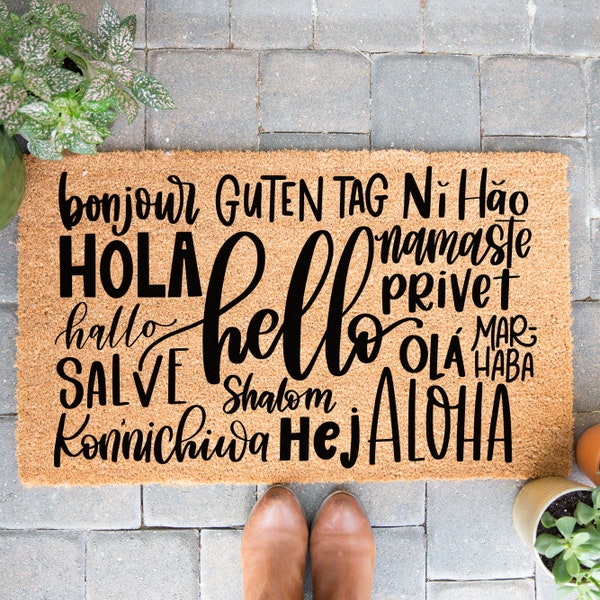 bonjour GUTEN TAG Nǐ Hǎo
HOLA hello namaste
privet
hallo OLÁ MAR-
HABA
SALVE Shalom ALOHA
Kon'nichiwa Hej